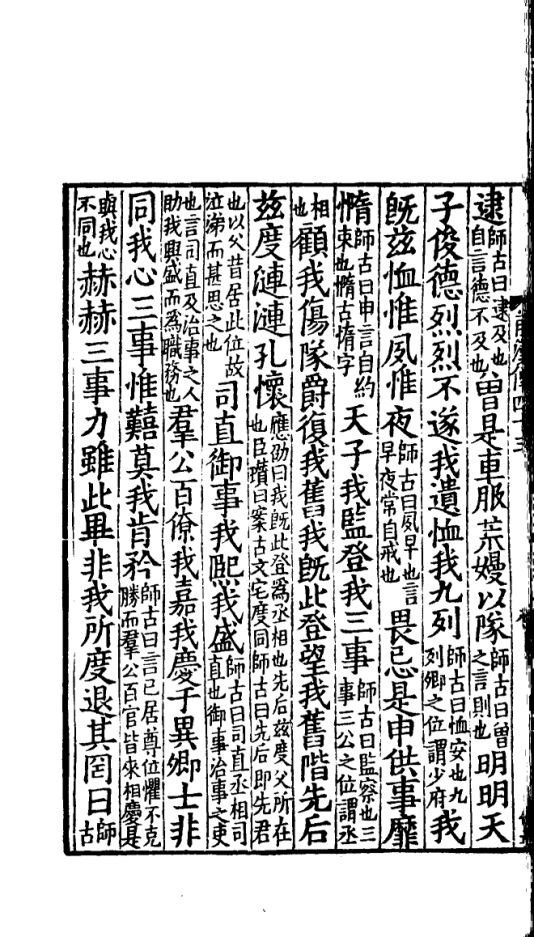 逮師古曰逮及也自言德不及也曾是車服荒嫚以隊師古曰曾之言則也明明天
子俊德烈烈不遂我遺恤我九列師古曰恤安也九列卿之位謂少府我
旣茲恤惟夙惟夜師古曰夙早也言早夜常自戒也畏忌是申供事靡
惰師古曰申言自約束也惰古惰字天子我監登我三事師古曰監察也三事三公之位謂丞
相也顧我傷隊爵復我舊我旣此登望我舊階先后
茲度漣漣孔懷應劭曰我旣此登爲丞相也先后茲度父所在也臣瓚曰案古文宅度同師古曰先后即先君
也以父昔居此位故泣涕而甚思之也司直御事我熙我盛師古曰司直丞相司直也御事治事之吏
也言司直及治事之人助我興盛而爲職務也羣公百僚我嘉我慶于異卿士非
同我心三事惟囏莫我肯矜師古曰言已居尊位懼不克勝而羣公百官皆來相慶是
與我心不同也赫赫三事力雖此畢非我所度退其罔曰師古